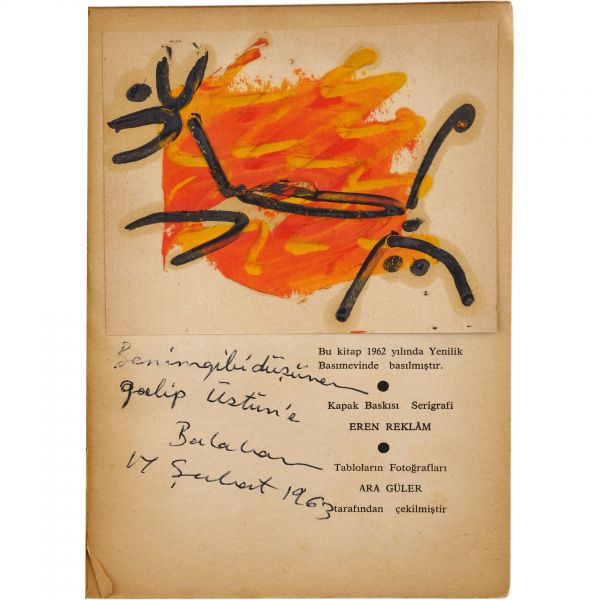 Bu kitap 1962 yılında Yenilik
Basımevinde basılmıştır.
Kapak Baskısı Serigrafi
EREN REKLÂM
Tabloların Fotoğrafları
ARA GÜLER
tarafından çekilmiştir
Benim gibi düşünen
galip Üstün'e
Balaban
17 Şubat 1963